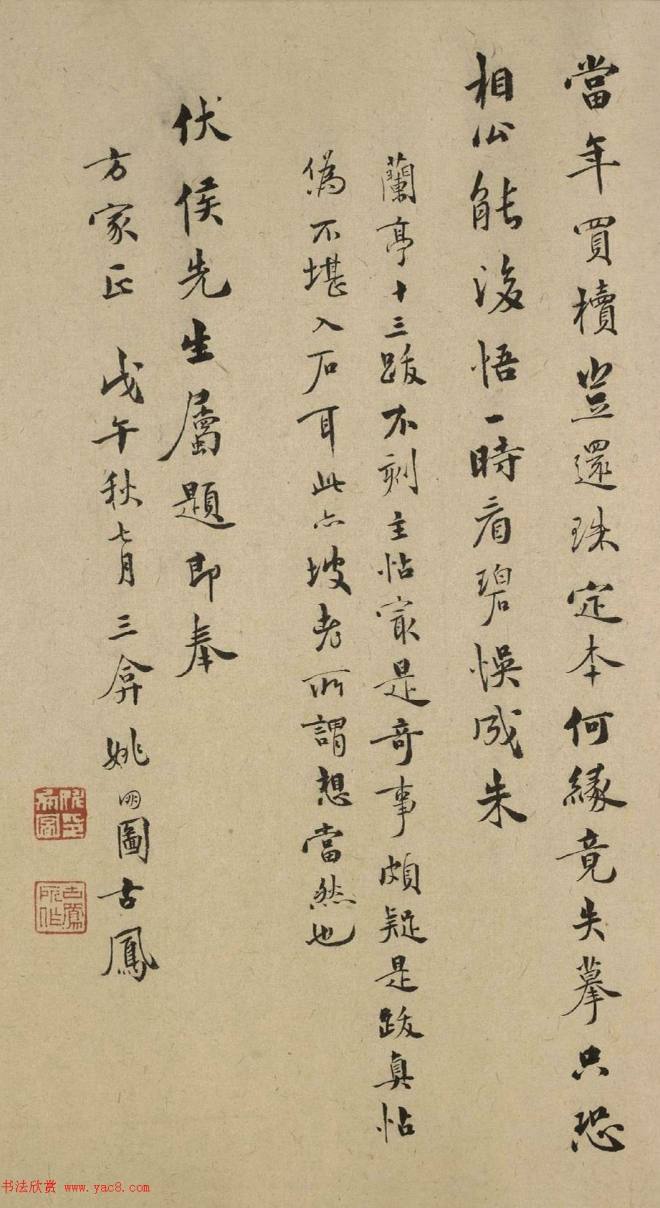 當年買櫝豈還珠定本何緣竟失摹只恐
相公能浚悟一時看碧悞成朱
蘭亭十三跋不刻主帖㝡是奇事頗疑是跋真帖
偽不堪入石耳此亦坡老所謂想當然也
伏侯先生屬題即奉
方家正 戊午秋七月三弇姚朙圖古鳳
書法欣赏 www.yac8.com